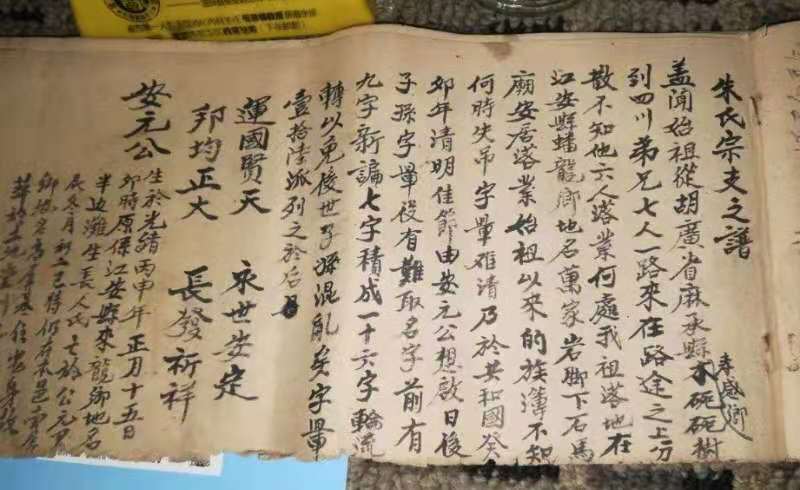 朱氏宗支之譜
蓋聞始祖從胡廣省麻承縣大碗碗樹
孝感鄉
到四川弟兄七人一路來在路途之上分
散不知他六人落業何處我祖落地在
江安縣蟠龍鄉地名萬家岩脚下石馬
廟安居落業始祖以來的族簿不知
何時失吊字軰难清乃於共和國癸
卯年清明佳節由安元公想啟日後
子孫字軰没有難取名字前有
九字新諞七字積成一十六字輪流
轉以免後世子孫混亂矣字軰
壹拾陸派列之於后
運國賢天 永世安定
邦均正大 長發祈祥
安元公
生於光緒丙申年正月十五日
卯時原係江安縣來龍鄉地名
半边灘生長人氏亡故公元甲
辰冬月初